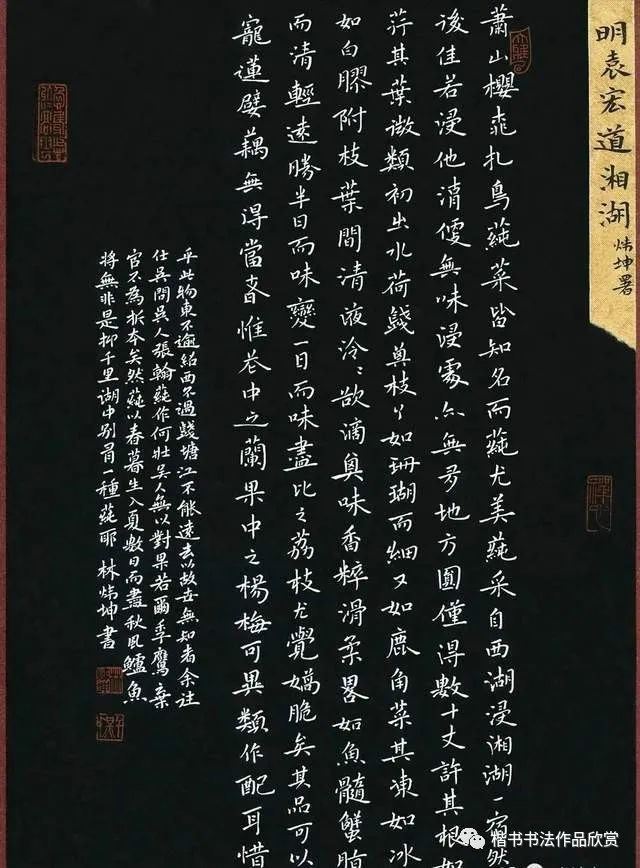 明袁宏道湘湖 炜坤署
蕭山櫻桃扎鳥蒓菜皆知名而蒓尤美蒓采自西湖浸湘湖一宿然
後佳若浸他湖便無味浸處亦無多地方圓僅得數十丈許其根如
荇其葉微類初出水荷錢其枝丫如珊瑚而細又如鹿角菜其凍如冰
如白膠附枝葉間清液泠泠欲滴其味香粹滑柔畧如魚髓蟹脂
而清輕遠勝半日而味變一日而味盡比之荔枝尤覺嬌脆矣其品可以
寵蓮嬖藕無得當者惟花中之蘭果中之楊梅可異類作配耳惜
乎此物東不逾紹西不過錢塘江不能遠去以故世無知者余往
仕吳問吳人張翰蒓作何狀吳人無以對果若爾季鷹棄
官不為折本矣然蒓以春暮生入夏數日而盡秋風鱸魚
將無非是抑千里湖中別有一種蒓耶 林炜坤書
楷书书法作品欣赏